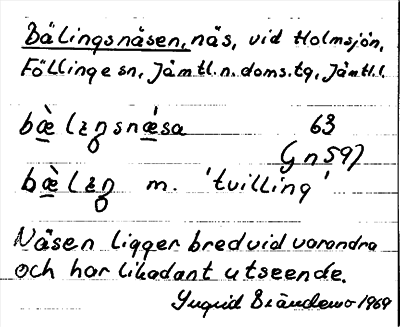 Bälingsnäsen, näs, vid Holmsjön,
Föllinge sn, Jämtl.n.doms.tg, Jämtl.l.
bæ̀lıŋsnǽsa 63
(Gn 59)
bæ̀lıŋ m. 'tvilling'
Näsen ligger bredvid varandra
och har likadant utseende.
Ingrid 1969